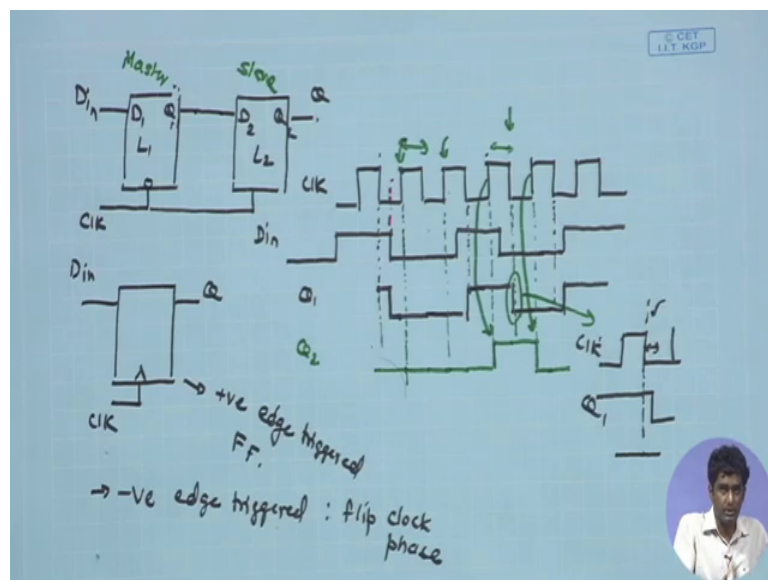 © CET
I.I.T. KGP
Master
Slave
Din
D1 Q1
L1
D2 Q2
L2
Q
Clk
Clk
Din
Q1
Q2
Din
Q
Clk
→ +ve edge triggered
FF.
→ -ve edge triggered : flip clock
phase
Clk
Q1